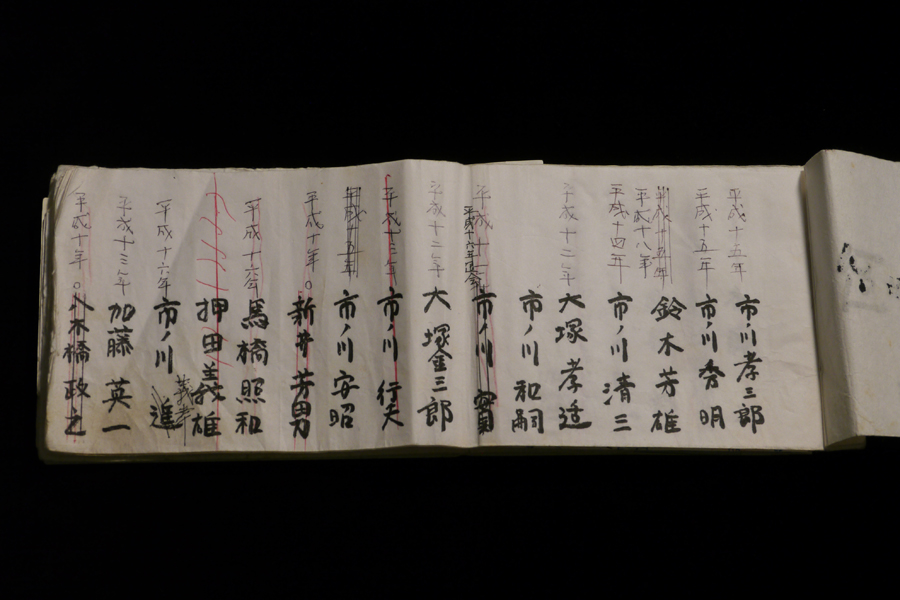 平成十五年 市ノ川孝三郎
平成十五年 市ノ川秀明
平成十五年 鈴木芳雄
平成十八年
平成十四年 市ノ川清三
平成十二年 大塚孝
市ノ川和嗣
平成十一 市ノ川
平成十六年
平成十二年 大塚金三郎
平成十三年 市ノ川行夫
平成十五年 市ノ川安昭
平成十年 新井芳男
平成十六年 馬橋照和
押田義雄
義孝
平成十六年 市ノ川進
平成十三年 加藤英一
平成十年 八木橋政之